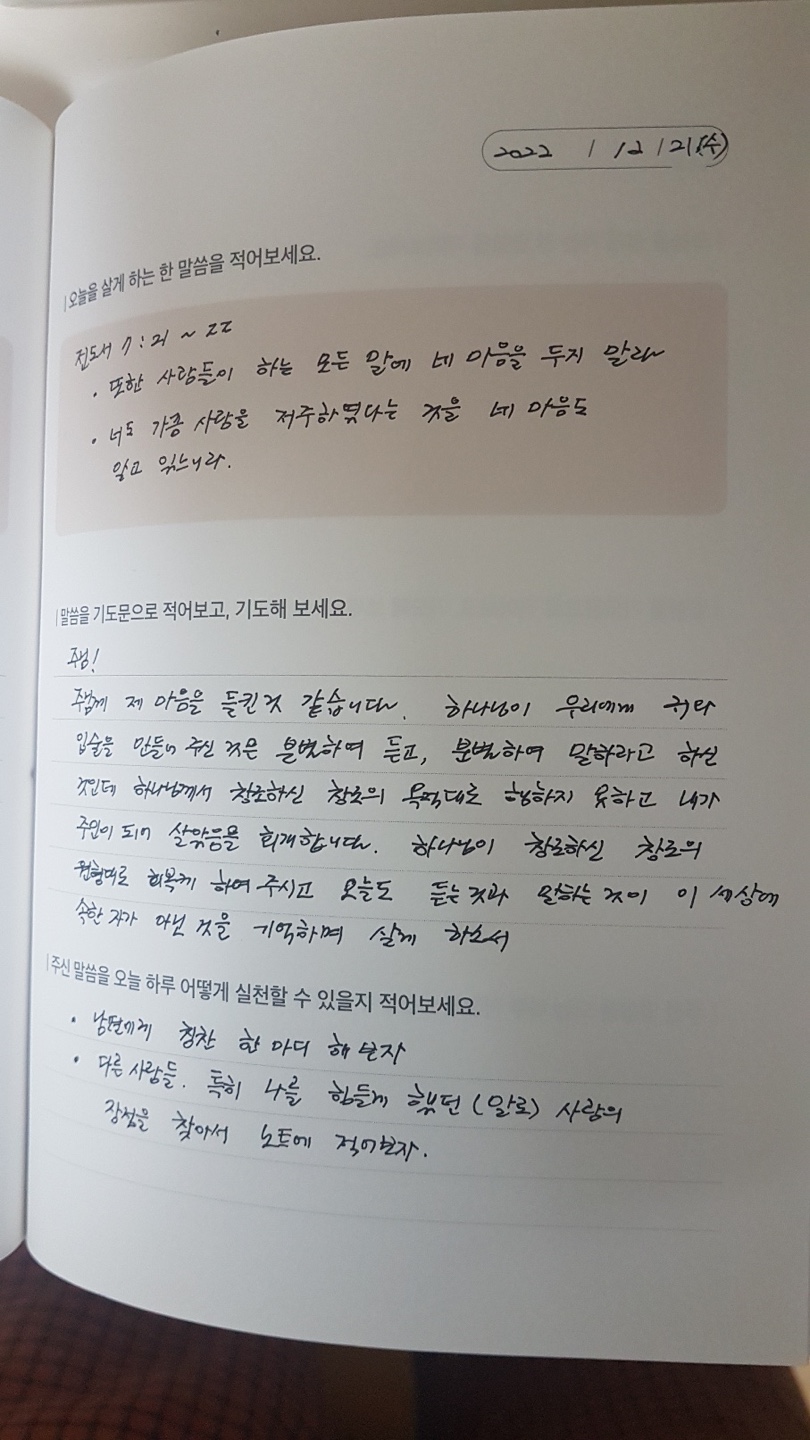 2022 / 12 / 21(수)
오늘을 살게 하는 한 말씀을 적어보세요.
전도서 7:21 ~ 22
· 또한 사람들이 하는 모든 말에 네 마음을 두지 말라
· 너도 가끔 사람을 저주하였다는 것을 네 마음도
알고 있느니라.
말씀을 기도문으로 적어보고, 기도해 보세요.
주님!
주님께 제 마음을 들킨것 같습니다. 하나님이 우리에게 귀와
입술을 만들어 주신 것은 분별하여 듣고, 분별하여 말하라고 하신
것인데 하나님께서 창조하신 창조의 목적대로 행하지 못하고 내가
주인이 되어 살았음을 회개합니다. 하나님이 창조하신 창조의
원형대로 회복케 하여 주시고 오늘도 듣는것과 말하는 것이 이 세상에
속한 자가 아닌 것을 기억하며 살게 하소서
주신 말씀을 오늘 하루 어떻게 실천할 수 있을지 적어보세요.
· 남편에게 칭찬 한 마디 해 보자
· 다른 사람들. 특히 나를 힘들게 했던 (말로) 사람의
장점을 찾아서 노트에 적어보자.